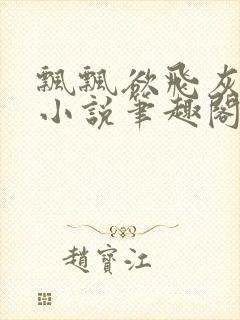 飄飄欲飛灰
小說筆趣閣
趙寶江